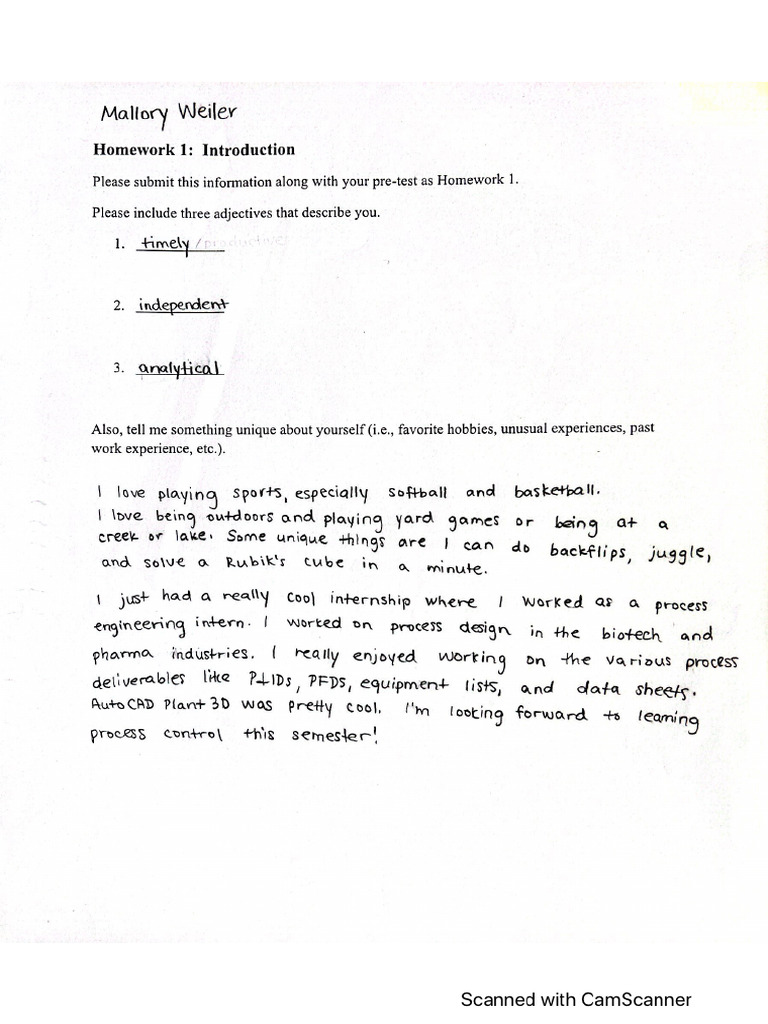 Mallory Weiler
Homework 1: Introduction
Please submit this information along with your pre-test as Homework 1.
Please include three adjectives that describe you.
1. timely /productive
2. independent
3. analytical
Also, tell me something unique about yourself (i.e., favorite hobbies, unusual experiences, past
work experience, etc.).
I love playing sports, especially softball and basketball.
I love being outdoors and playing yard games or being at a
creek or lake. Some unique things are I can do backflips, juggle,
and solve a Rubik's cube in a minute.
I just had a really cool internship where I worked as a process
engineering intern. I worked on process design in the biotech and
pharma industries. I really enjoyed working on the various process
deliverables like P&IDs, PFDs, equipment lists, and data sheets.
AutoCAD Plant 3D was pretty cool. I'm looking forward to learning
process control this semester!
Scanned with CamScanner